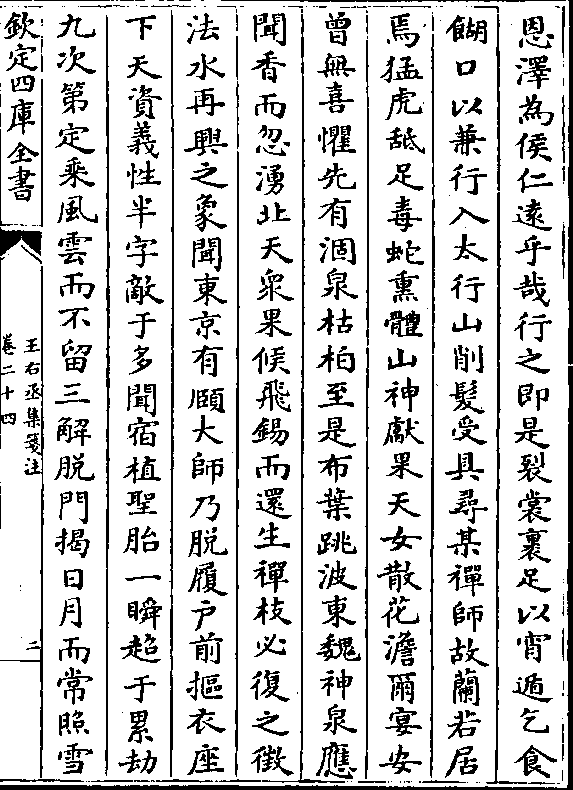 恩澤為侯仁遠乎哉行之即是裂裳裹足以宵遁乞食
餬口以兼行入太行山削髮受具尋某禪師故蘭若居
焉猛虎舐足毒蛇熏體山神獻果天女散花澹爾宴安
曾無喜懼先有涸泉枯柏至是布葉跳波東魏神泉應
聞香而忽湧北天衆果候飛錫而還生禪枝必復之徵
法水再興之象聞東京有頤大師乃脱履戶前摳衣座
下天資義性半字敵于多聞宿植聖胎一瞬超于累劫
九次第定乘風雲而不留三解脱門揭日月而常照雪
欽定四庫全書
王右丞集箋注
卷二十四
二